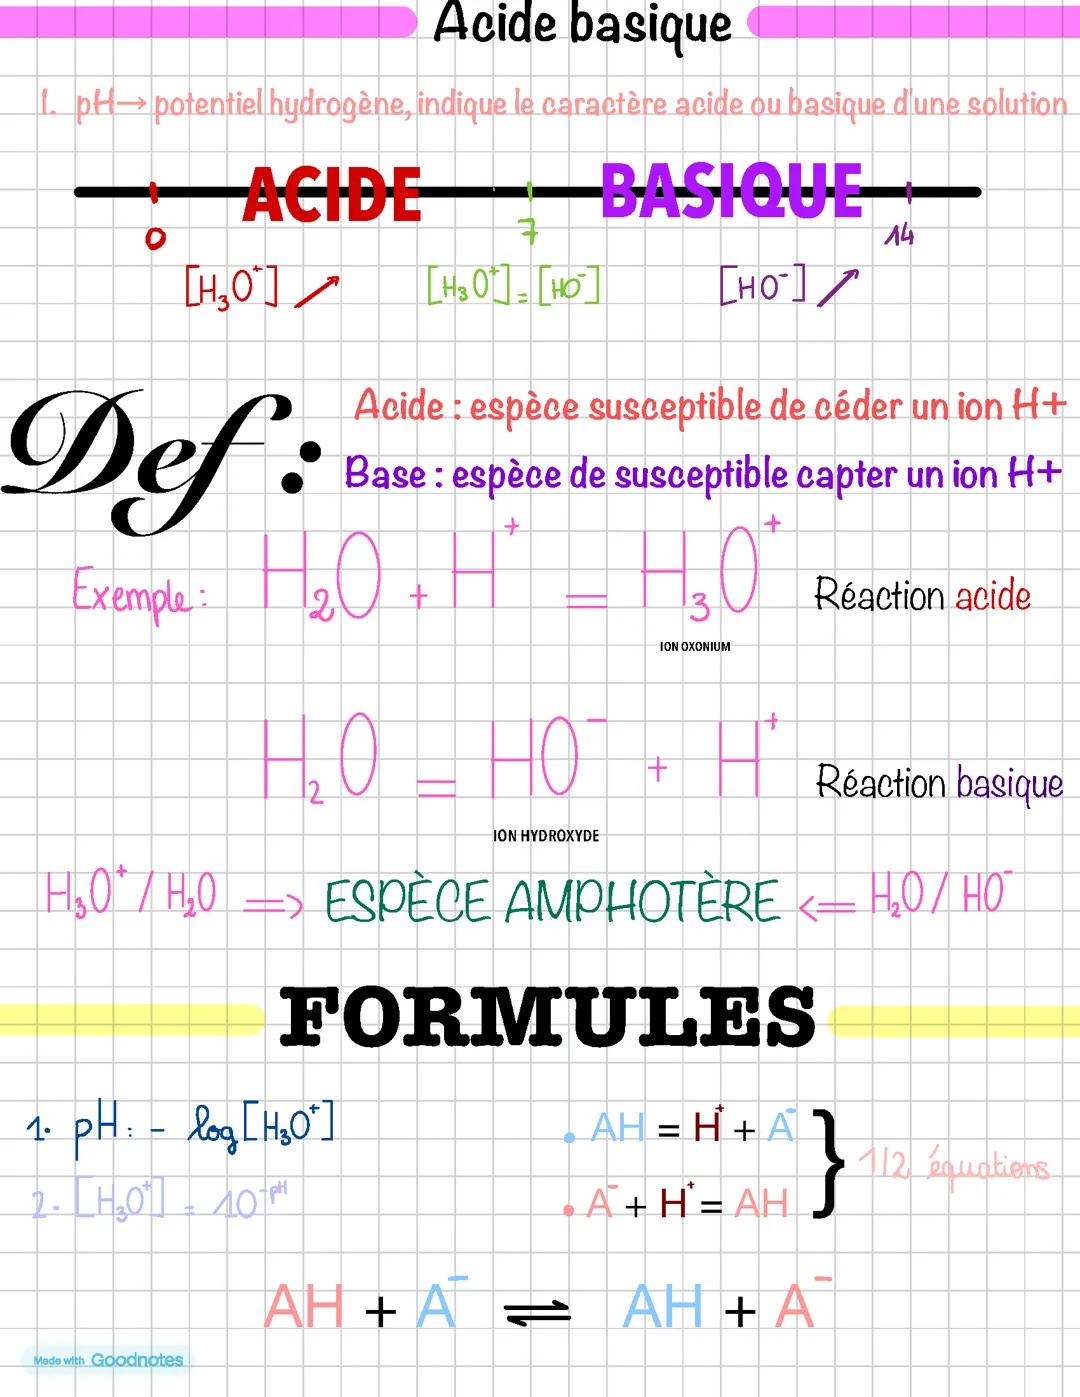 Acide basique
1. pH→ potentiel hydrogène, indique le caractère acide ou basique d'une solution
ACIDE BASIQUE
0 7 14
[H₃O⁺] ↗ [H₃O⁺] = [HO⁻] [HO⁻] ↗
Def :
Acide : espèce susceptible de céder un ion H+
Base : espèce de susceptible capter un ion H+
Exemple : H₂O + H⁺ = H₃O⁺ Réaction acide
ION OXONIUM
H₂O = HO⁻ + H⁺ Réaction basique
ION HYDROXYDE
H₃O⁺ / H₂O => ESPÈCE AMPHOTÈRE <= H₂O / HO⁻
FORMULES
1. pH : - log [H₃O⁺]
2. [H₃O⁺] = 10⁻ᵖᴴ
• AH = H⁺ + A⁻
• A⁻ + H⁺ = AH
} 1/2 équations
AH + A⁻ ⇌ AH + A⁻
Made with Goodnotes